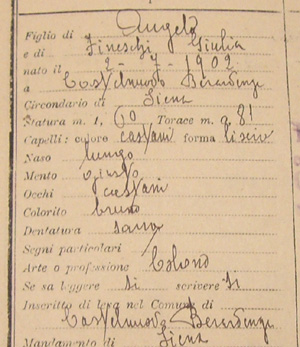 Figlio di Angelo
e di Fineschi Giulia
nato il 2 - 7 - 1902
a Castelnuovo Berardenga
Circondario di Siena
Statura m. 1, 60 Torace m. 0,81
Capelli: colore castani forma lisci
Naso lungo
Mento giusto
Occhi castani
Colorito bruno
Dentatura sana
Segni particolari
Arte o professione Colono
Se sa leggere si scrivere si
Inscritto di leva nel Comune di
Castelnuovo Berardenga
Mandamento di Siena